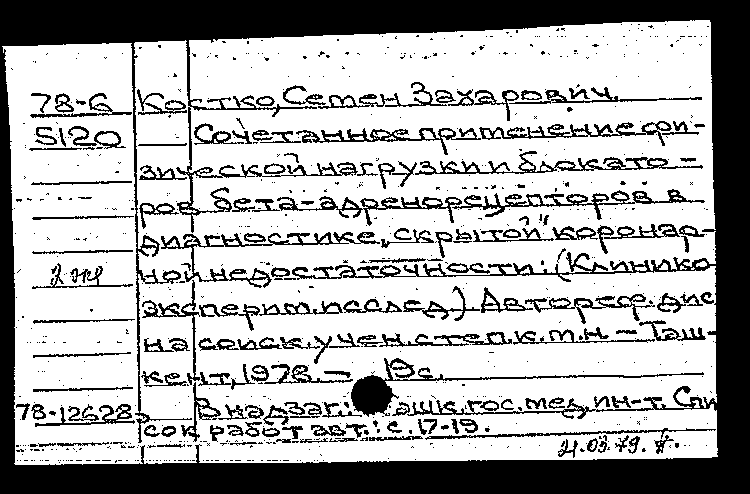 78-6 Костко, Семен Захарович.
5120 Сочетанное применение фи-
зической нагрузки и блокато-
ров бета-адренорецепторов в
диагностике „скрытой" коронар-
2 экз ной недостаточности: (Клинико
эксперим. исслед.) Автореф. дис
на соиск. учен. степ. к. м. н. - Таш-
кент, 1978. - 19с.
78-12628 В надзаг.: ашк. гос. мед. ин-т. Спи
сок работ авт.: с. 17-19.
21.03.79.